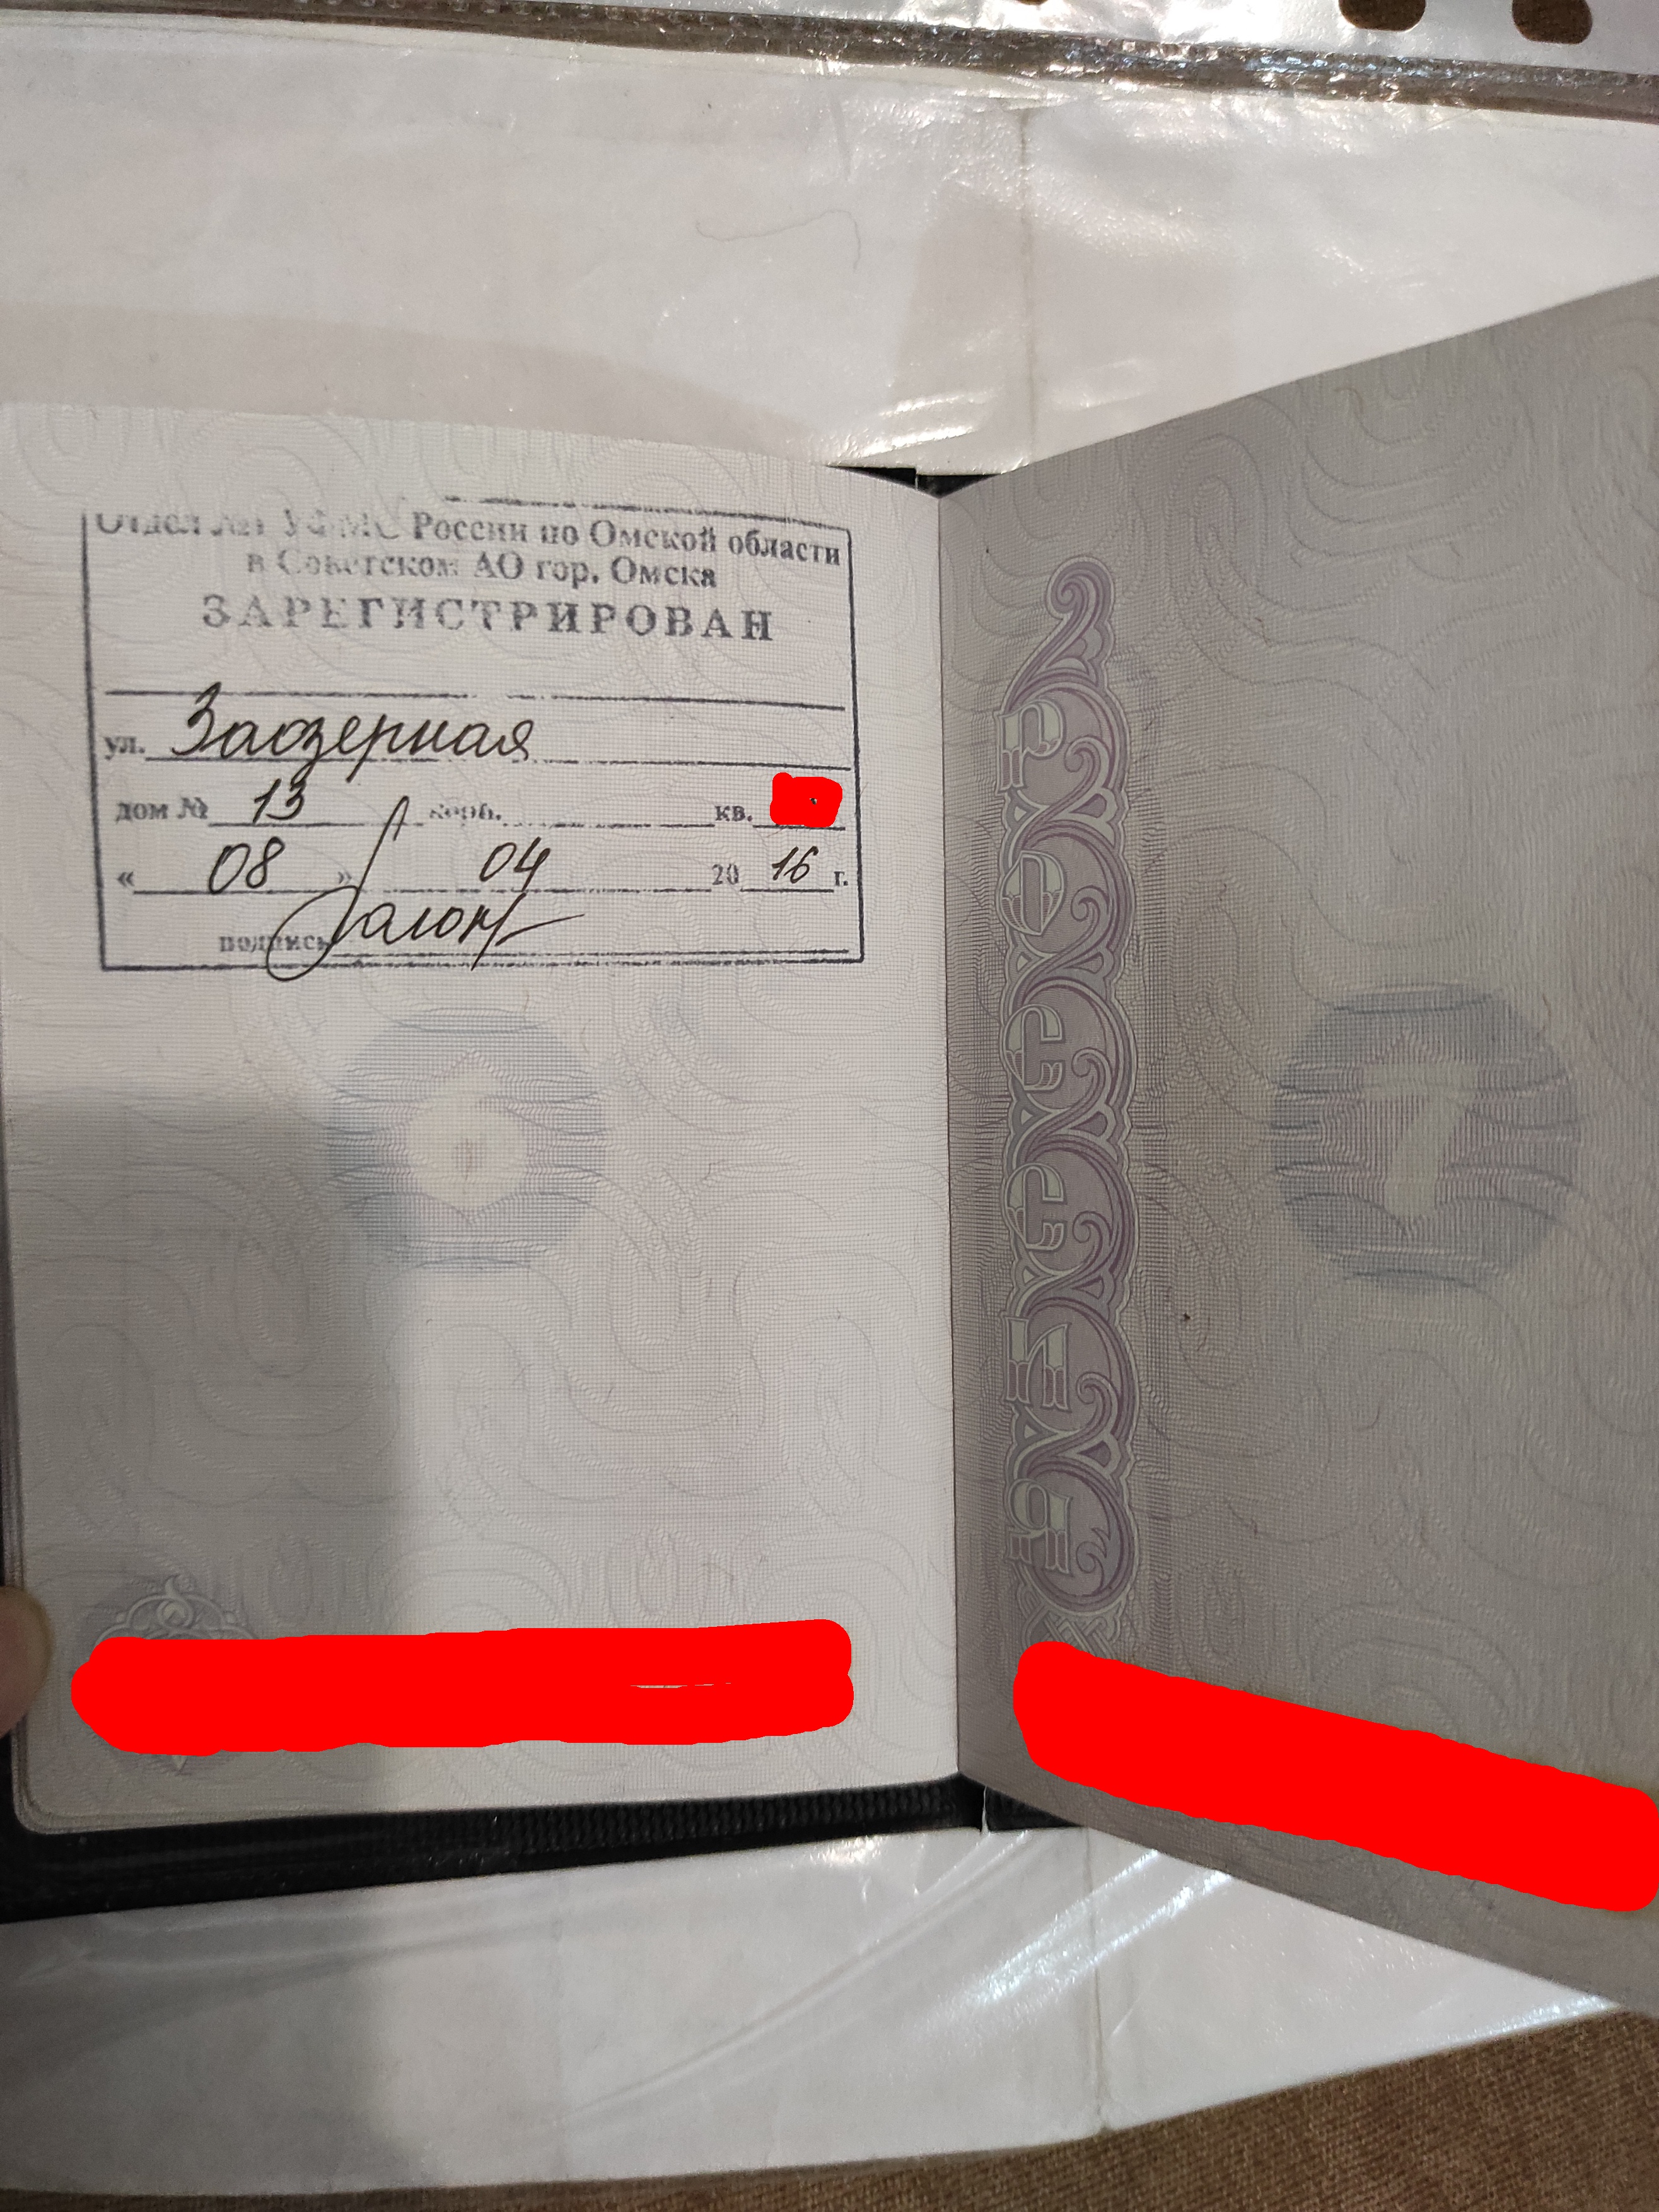 Отдел №1 УФМС России по Омской области
в Советском АО гор. Омска
ЗАРЕГИСТРИРОВАН
ул. Заозерная
дом № 13 корп. кв.
« 08 » 04 20 16 г.
подпись
РОССИЯ
6
7